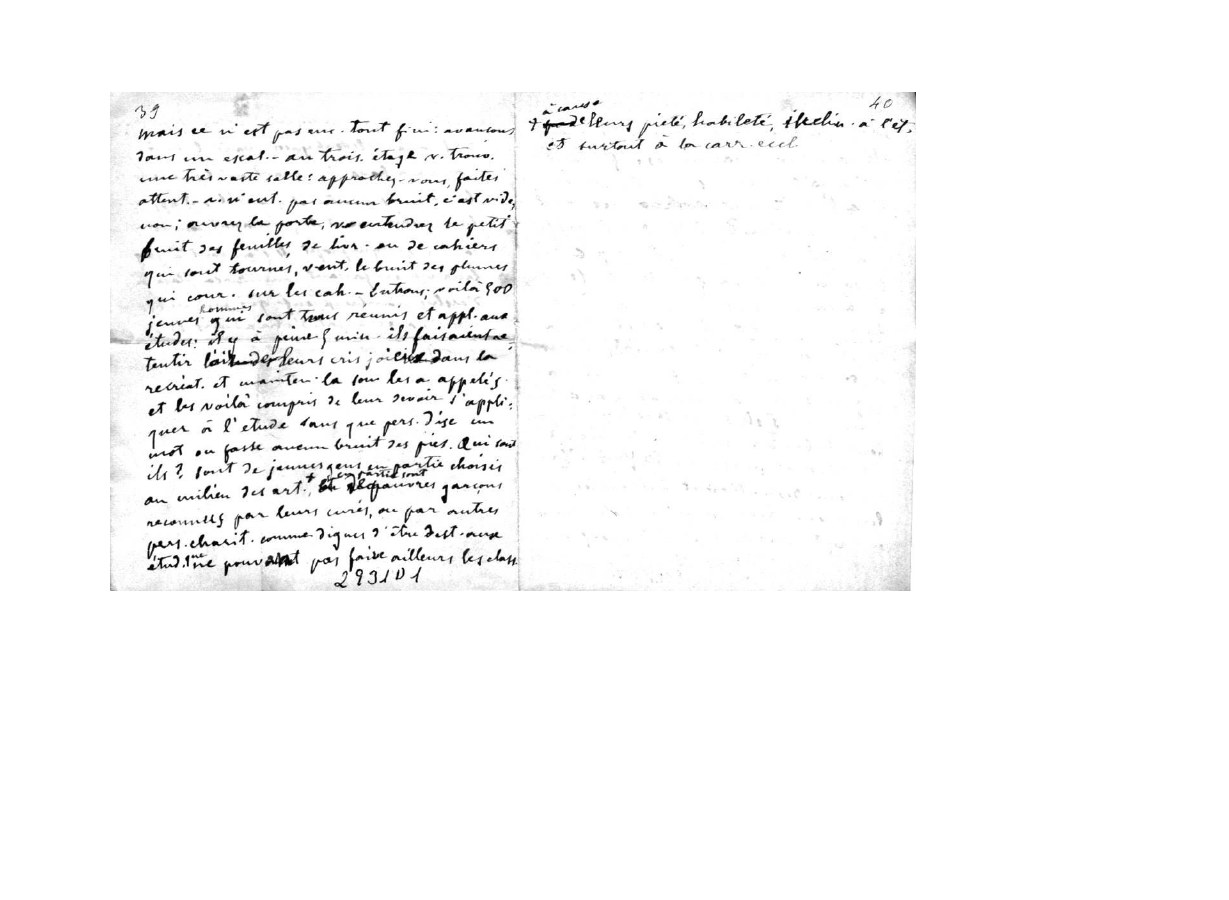 39
mais ce n'est pas enc. tout fini: avançons
dans un escal. - au trois. étage v. trouv.
une très vaste salle: approchez-vous, faites
attent. - v. n'ent. pas aucun bruit, c'est vide,
non; ouvrez la porte, vs entendrez le petit
bruit des feuilles de livr. ou de cahiers
qui sont tournés, v. ent. le bruit des plumes
qui cour. sur les cah. - Entrons; voilà 500
jeunes hommes qui sont tous réunis et appl. aux
études: il y à peine 5 min. ils faisaient re
tentir leurs cris dans la
recréat. et mainten. la son les a appelés
et les voilà compris de leur devoir s'appli-
quer à l'etude sans que pers. dise un
mot ou fasse aucun bruit des pies. Qui sont
ils? sont de jeunes gens en partie choisis
au milieu des art. +, en partie sont pauvres garçons
reconnus par leurs curés, ou par autres
pers. charit. comme dignes d'être dest. aux
étud. ne pouvant pas faire ailleurs les class.
2931D1
40
+ à cause de leurs pieté, habileté, inclin. à l'ét.
et surtout à la carr. eccl